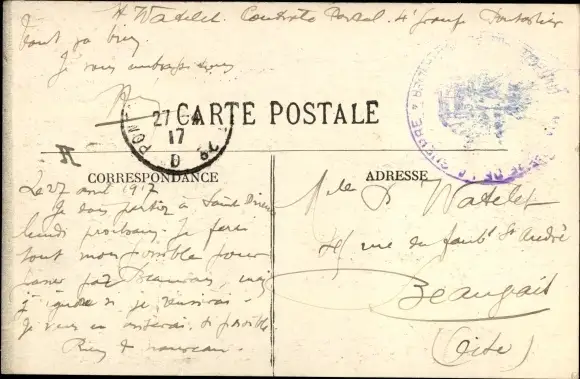 H. Watelet Contrôle Postal 4e Groupe Pontarlier
Tout va bien
Je vous embrasse
CARTE POSTALE
27 4
17
CORRESPONDANCE
ADRESSE
Le 27 avril 1917
Je dois partir à Saint
lundi prochain. Je ferai
tout mon possible pour
passer par Beauvais, mais
j'ignore si je réussirai.
Je vous en aviserai si possible.
Rien de nouveau.
Mlle D Watelet
rue du faubt St André
Beauvais
(Oise)